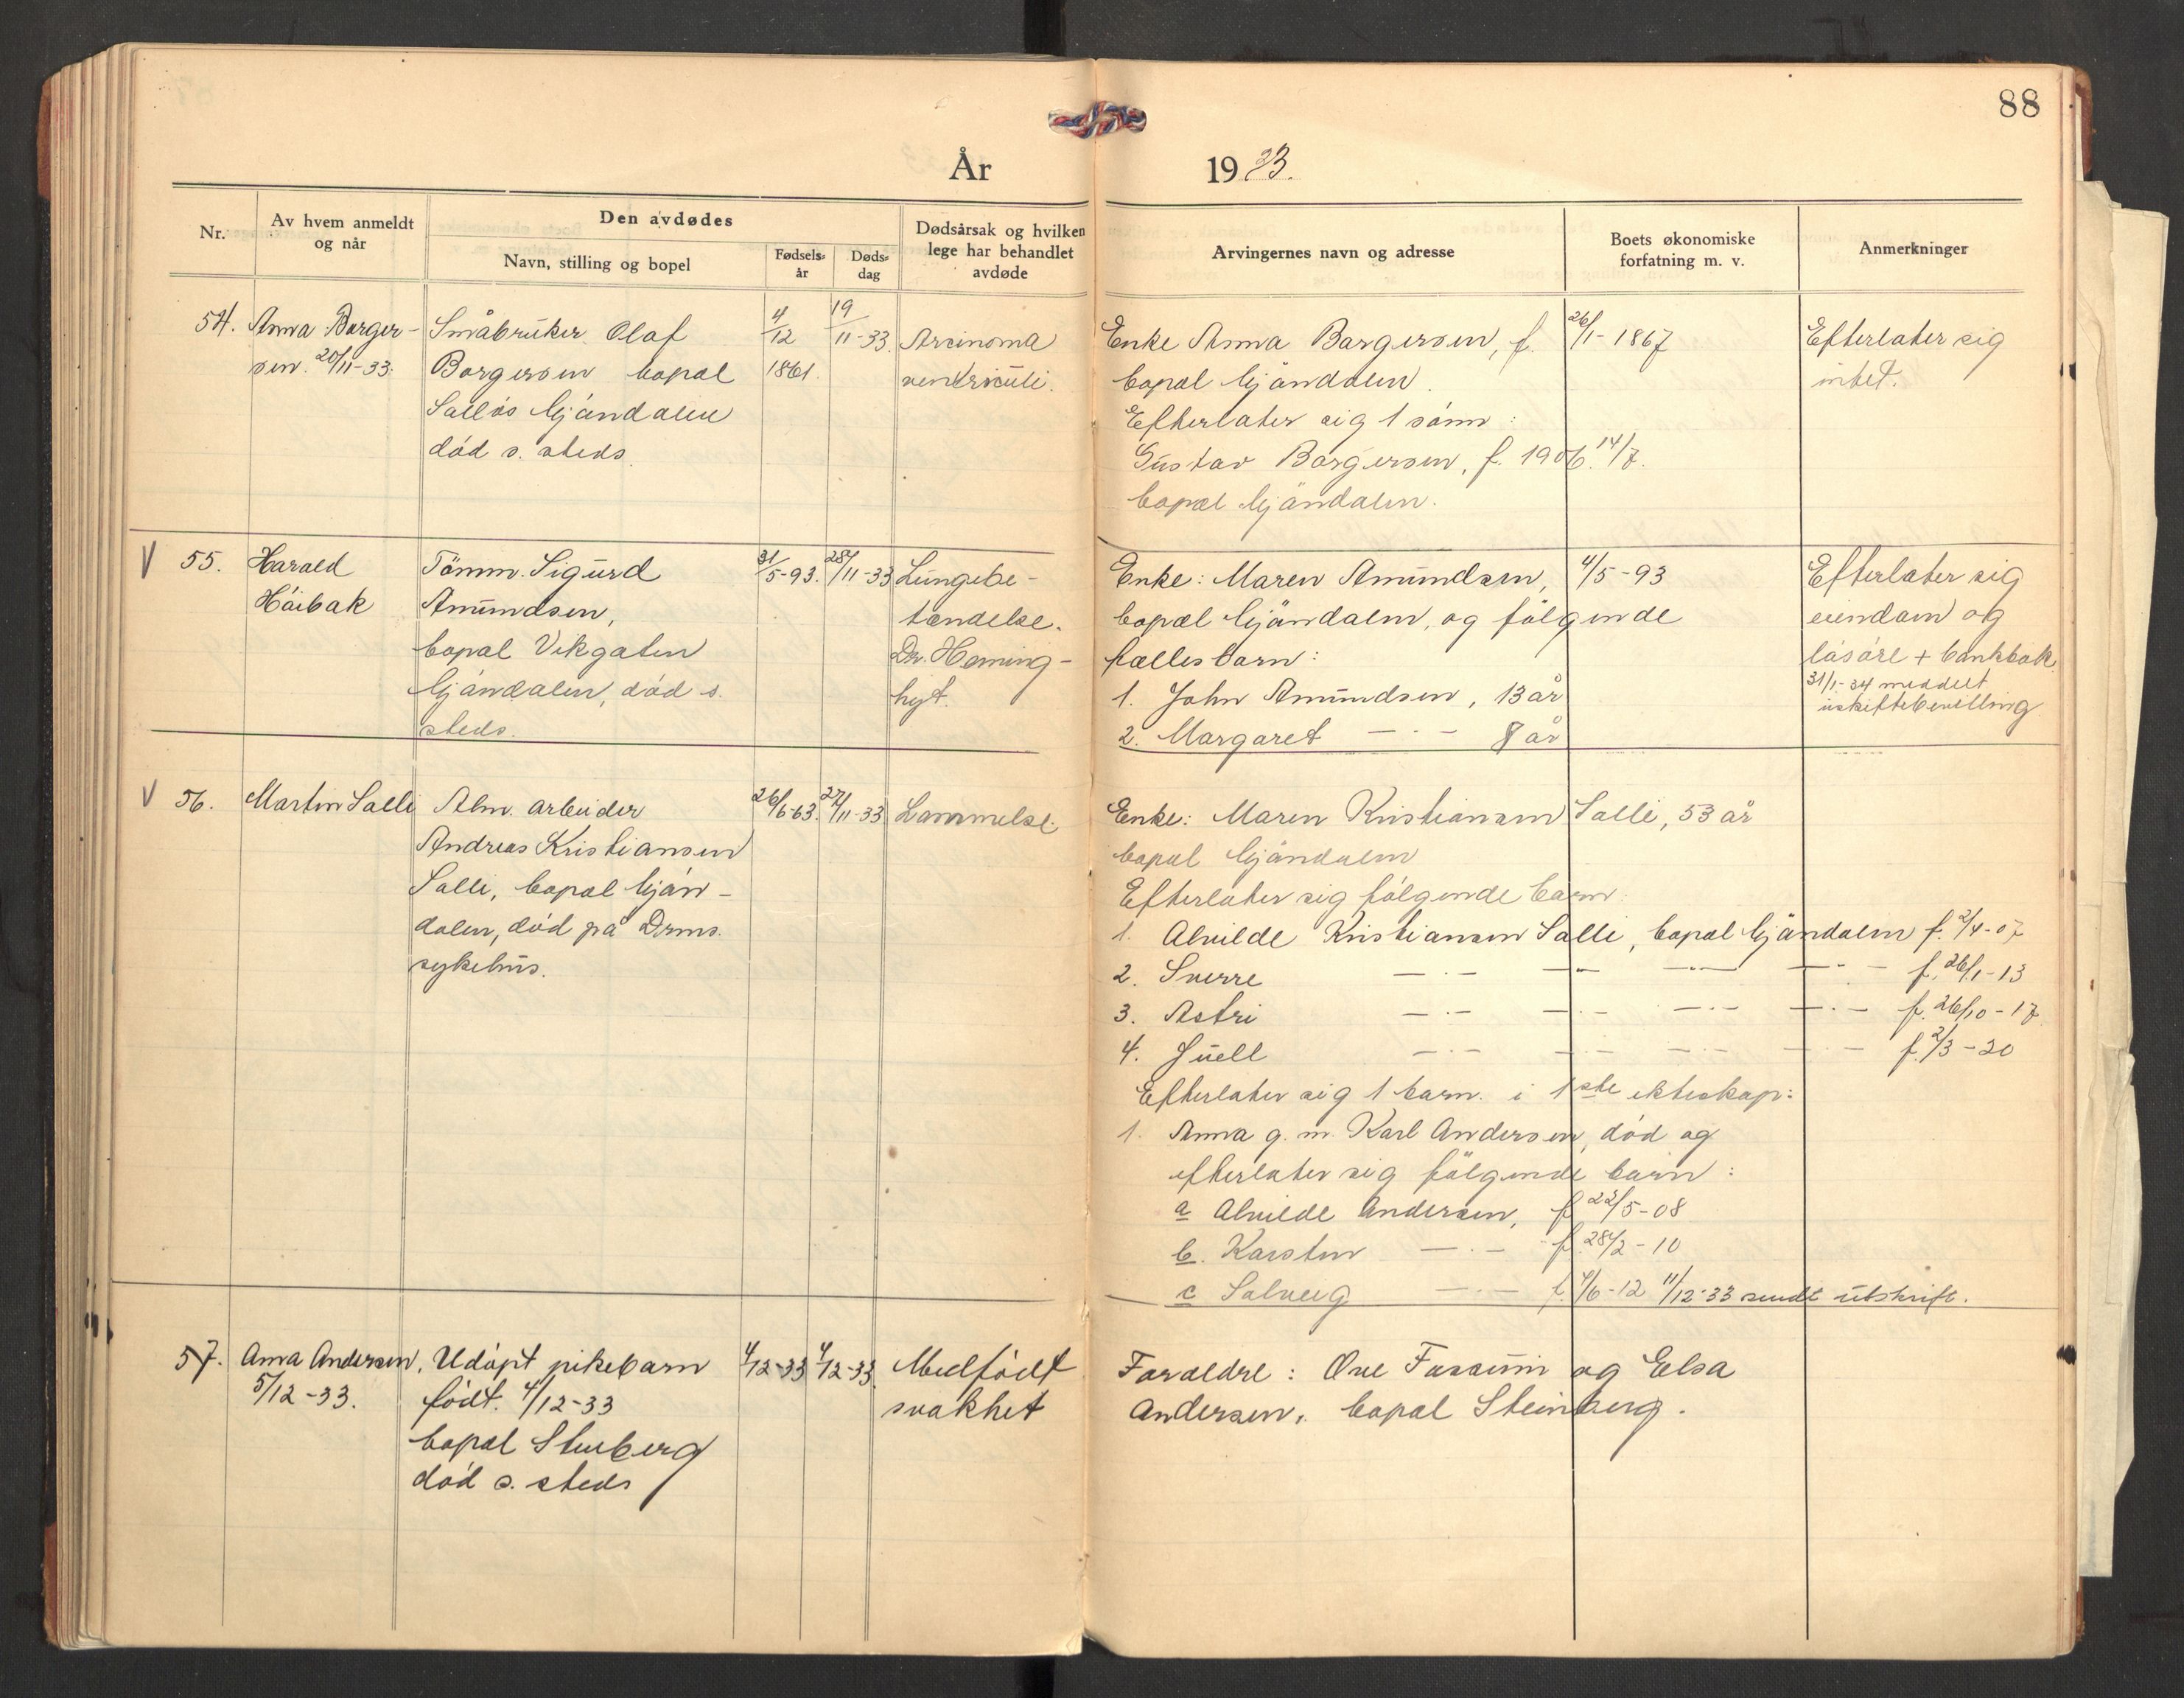 88
År 1933.
Nr.
Av hvem anmeldt
og når
Den avdødes
Navn, stilling og bopel
Fødsels-
år
Døds-
dag
Dødsårsak og hvilken
lege har behandlet
avdøde
Arvingernes navn og adresse
Boets økonomiske
forfatning m. v.
Anmerkninger
54.
Anna Borger-
sen. 20/11-33.
Småbruker Olaf
Borgersen bopæl
Sallös Gjöndalen
död s. steds.
4/12
1861.
19/11-33.
Arcinoma
ventriculi.
Enke Anna Borgersen, f. 26/1-1867
bopæl Gjöndalen.
Efterlater sig 1 sönn:
Gustav Borgersen, f. 1906. 14/7.
bopæl Gjöndalen.
Efterlater sig
intet.
V 55.
Harald
Höibak
Tömm. Sigurd
Amundsen,
bopæl Vikgaten
Gjöndalen, död s.
steds.
31/5-93.
28/11-33
Lungebe-
tændelse.
Dr. Heming-
hyt.
Enke: Maren Amundsen, 4/5-93
bopæl Gjöndalen, og fölgende
fællesbarn:
1. John Amundsen, 13 år
2. Margaret —·— 8 år
Efterlater sig
eiendom og
lösöre + bankbok
31/1-34 meddelt
uskiftebevilling
V 56.
Martin Salli
Alm. arbeider
Andreas Kristiansen
Salli, bopæl Gjön-
dalen, död på Drms.
sykehus.
26/6-63.
27/11-33
Lammelse.
Enke: Maren Kristiansen Salli, 53 år
bopæl Gjöndalen
Efterlater sig fölgende barn:
1. Alvilde Kristiansen Salli, bopæl Gjöndalen f. 2/4-07
2. Sverre —·— —·— —·— —·— f. 26/1-13
3. Astri —·— —·— —·— —·— f. 26/10-17
4. Juell —·— —·— —·— —·— f. 2/3-20
Efterlater sig 1 barn. i 1ste ekteskap:
1. Anna g. m. Karl Andersen, död og
efterlater sig fölgende barn:
a Alvilde Andersen, f. 22/5-08
b. Karsten —·— f. 28/2-10
c Solveig —·— f. 4/6-12 11/12-33 sendt utskrift.
57.
Anna Andersen,
5/12-33.
Udöpt pikebarn
födt. 4/12-33
bopæl Stenberg
död s. steds
4/12-33
4/12-33.
Medfödt
svakhet
Foreldre: Ove Fossum og Elsa
Andersen, bopæl Steinberg.